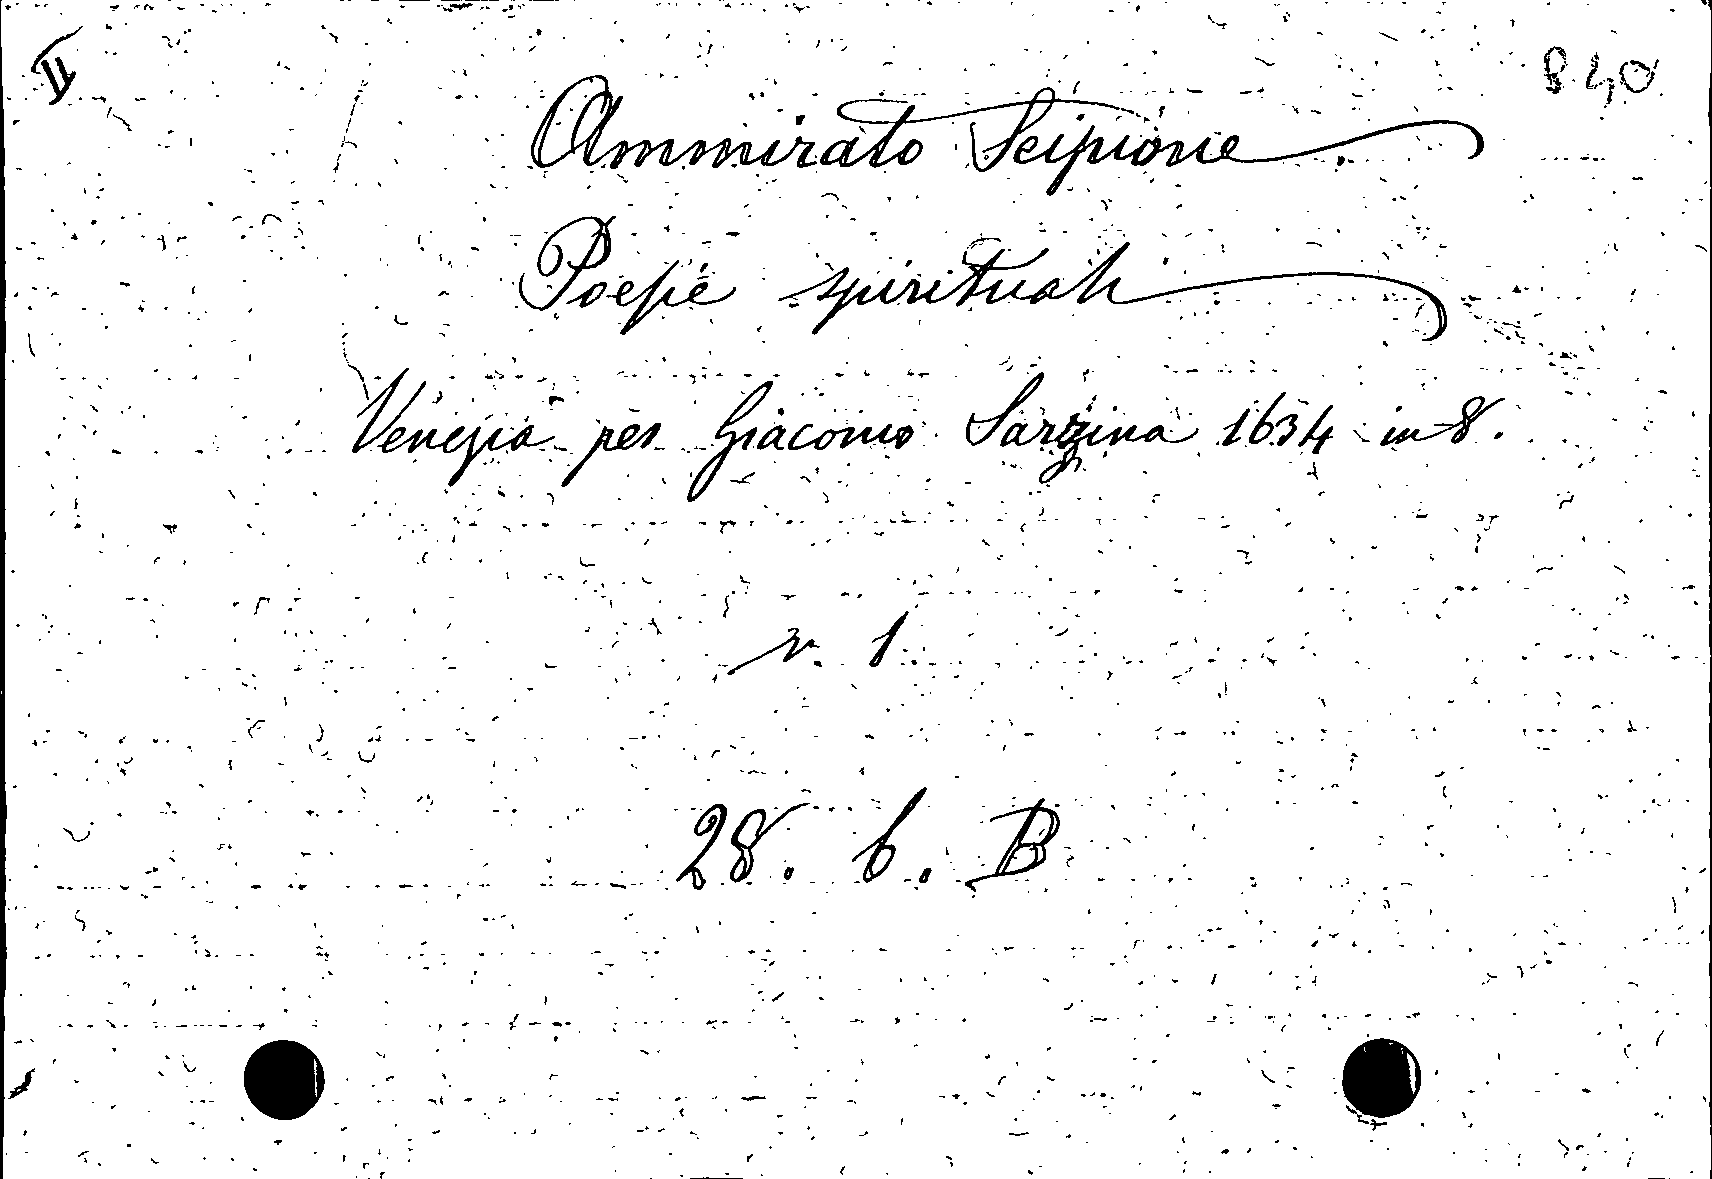 II
840
Ammirato Scipione
Poesie spirituali
Venezia per Giacomo Sarzina 1634 in 8.
v. 1
28. 6. B